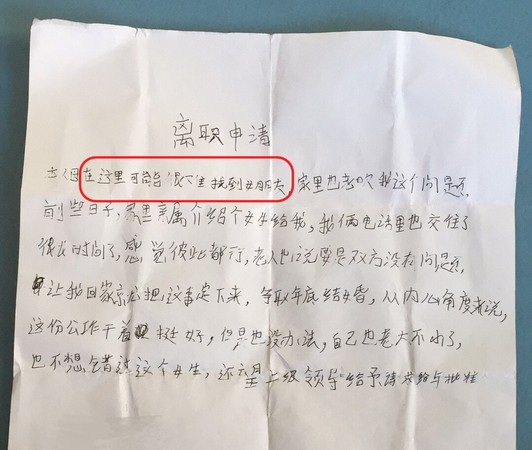 离职申请
在这里可能很难找到女朋友，家里也老吹我这个问题
前些日子，家里亲属介绍个女生给我，我俩电话里也交往了
很长时间了，感觉彼此都行，老人也说要是双方没有问题
让我回家就把这事定下来，争取年底结婚，从内心角度来说，
这份公作干着挺好，但是也没办法，自己也老大不小了，
也不想错过这个女生，还六望上级领导给予请求给与批准